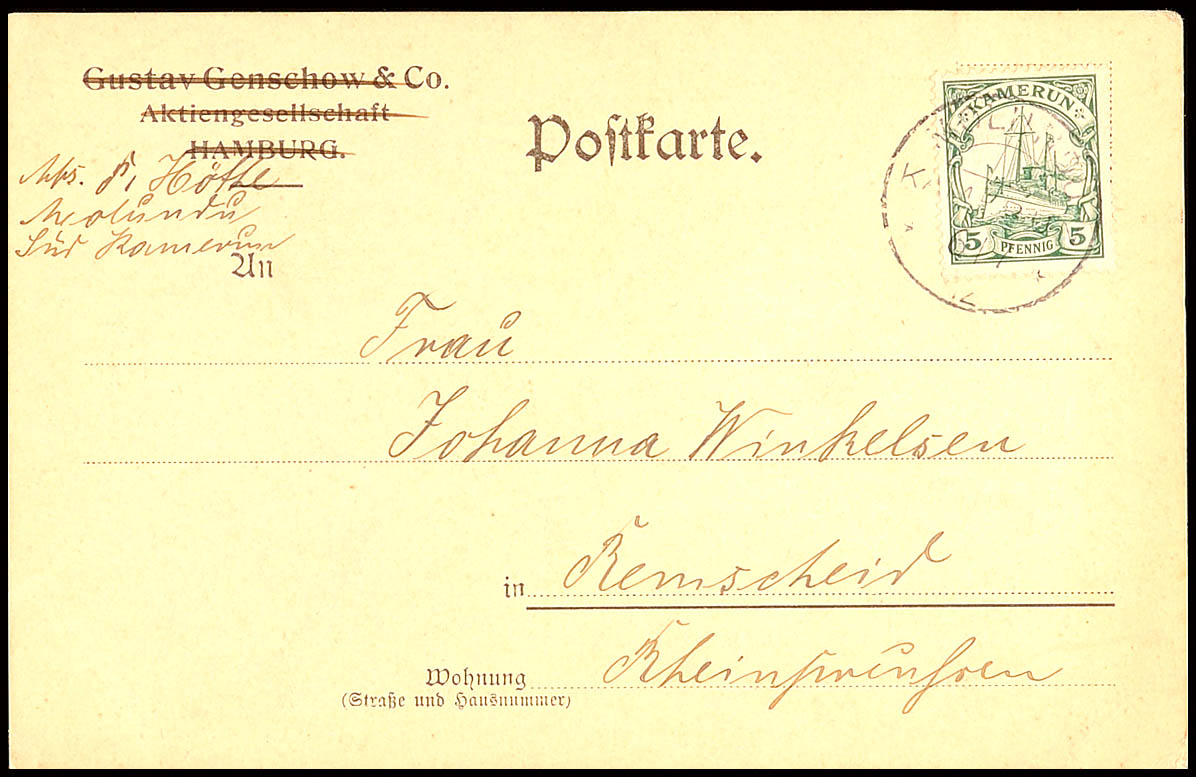 Gustav Genschow & Co.
Aktiengesellschaft
HAMBURG.
Abs. F. Höthe
Molundu
Süd Kamerun
Postkarte.
KAMERUN
5 PFENNIG 5
An
Frau
Johanna Winkelsen
in Remscheid
Rheinpreussen
Wohnung
(Straße und Hausnummer)